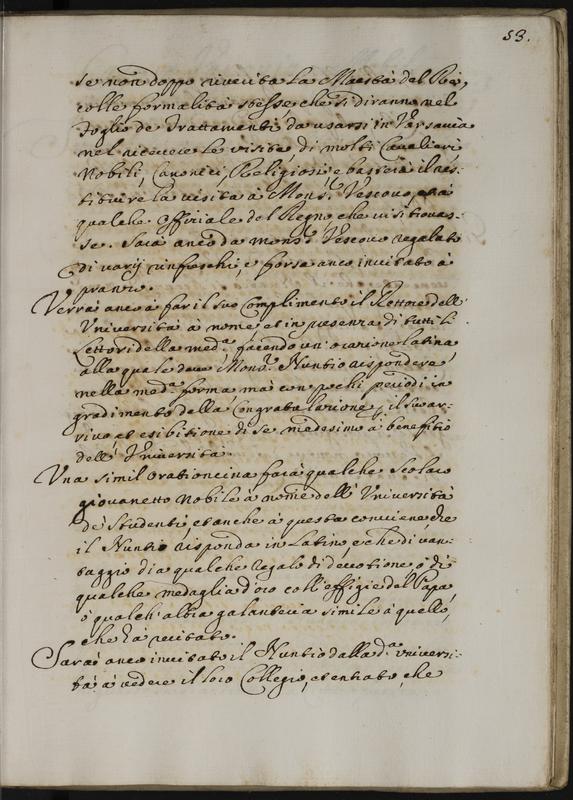 53.
se non doppo riverita la Maestà del Rè,
colle formalità stesse, che si diranno nel
foglio de Trattamenti da usarsi in Varsavia
nel ricevere le visite, di molti Cavalieri
Nobili, Canonici, Religiosi, e basterà il res-
tituire la visita à Mons.r Vescovo, et à
qualche Offitiale del Regno che vi si trovas-
se. Sarà anco da Mons.r Vescovo regalato
di varij rinfreschi, e forse anco invitato à
pranzo.
Verrà anco à far il suo Complimento il Rettore dell'
Università à nome et in presenza di tutti li
Lettori della med.a facendo un'oratione latina
alla quale deve Mons.r Nuntio rispondere
nella med.a forma mà con pochi periodi in
gradimento della Congratulazione, il suo ar-
rivo et esibitione di se medesimo à benefitio
dell'Università.
Una simil orationcina farà qualche Scolaro
giovanetto Nobile à nome dell'Università
de' Studenti, et anche à questa conviene, che
il Nuntio risponda in Latino, e che di van-
taggio dia qualche regalo di devotione, ò di
qualche medaglia d'oro coll'effigie del Papa,
ò qualch'altra galanteria simile à quello,
che hà recitato.
Sarà anco invitato il Nuntio dalla d.a Universi-
tà à vedere il loro Collegio, et entrato, che